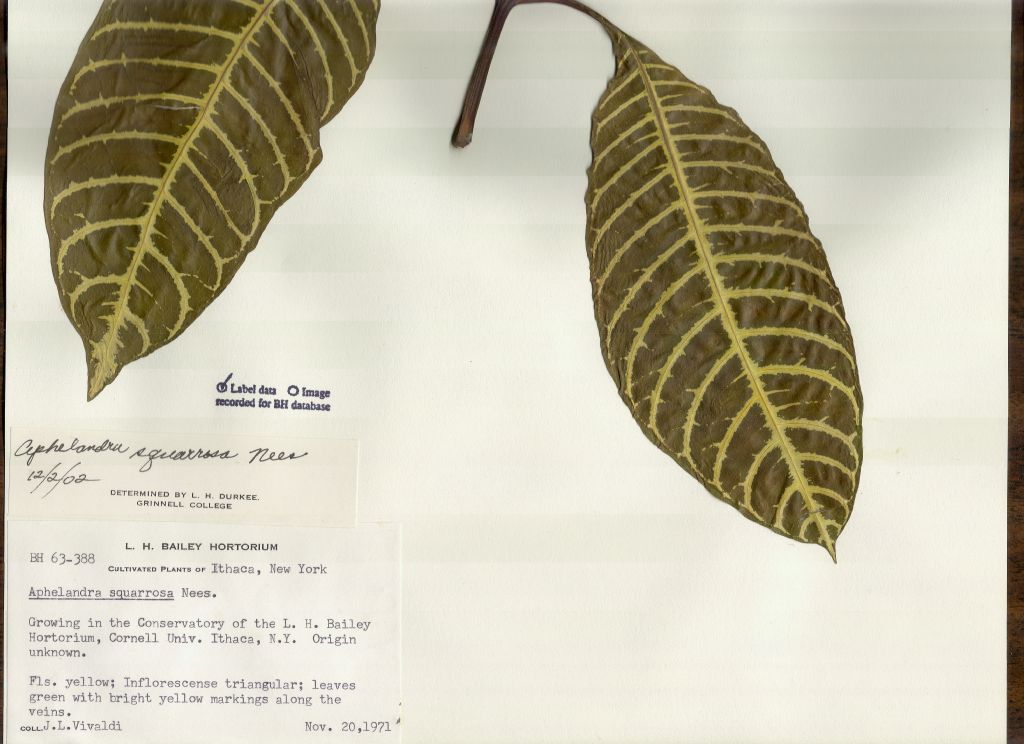 Label data Image
recorded for BH database
Aphelandra squarrosa Nees
12/2/02
DETERMINED BY L. H. DURKEE.
GRINNELL COLLEGE
L. H. BAILEY HORTORIUM
BH 63-388
CULTIVATED PLANTS OF Ithaca, New York
Aphelandra squarrosa Nees.
Growing in the Conservatory of the L. H. Bailey
Hortorium, Cornell Univ. Ithaca, N.Y. Origin
unknown.
Fls. yellow; Inflorescense triangular; leaves
green with bright yellow markings along the
veins.
COLL. J.L.Vivaldi Nov. 20,1971